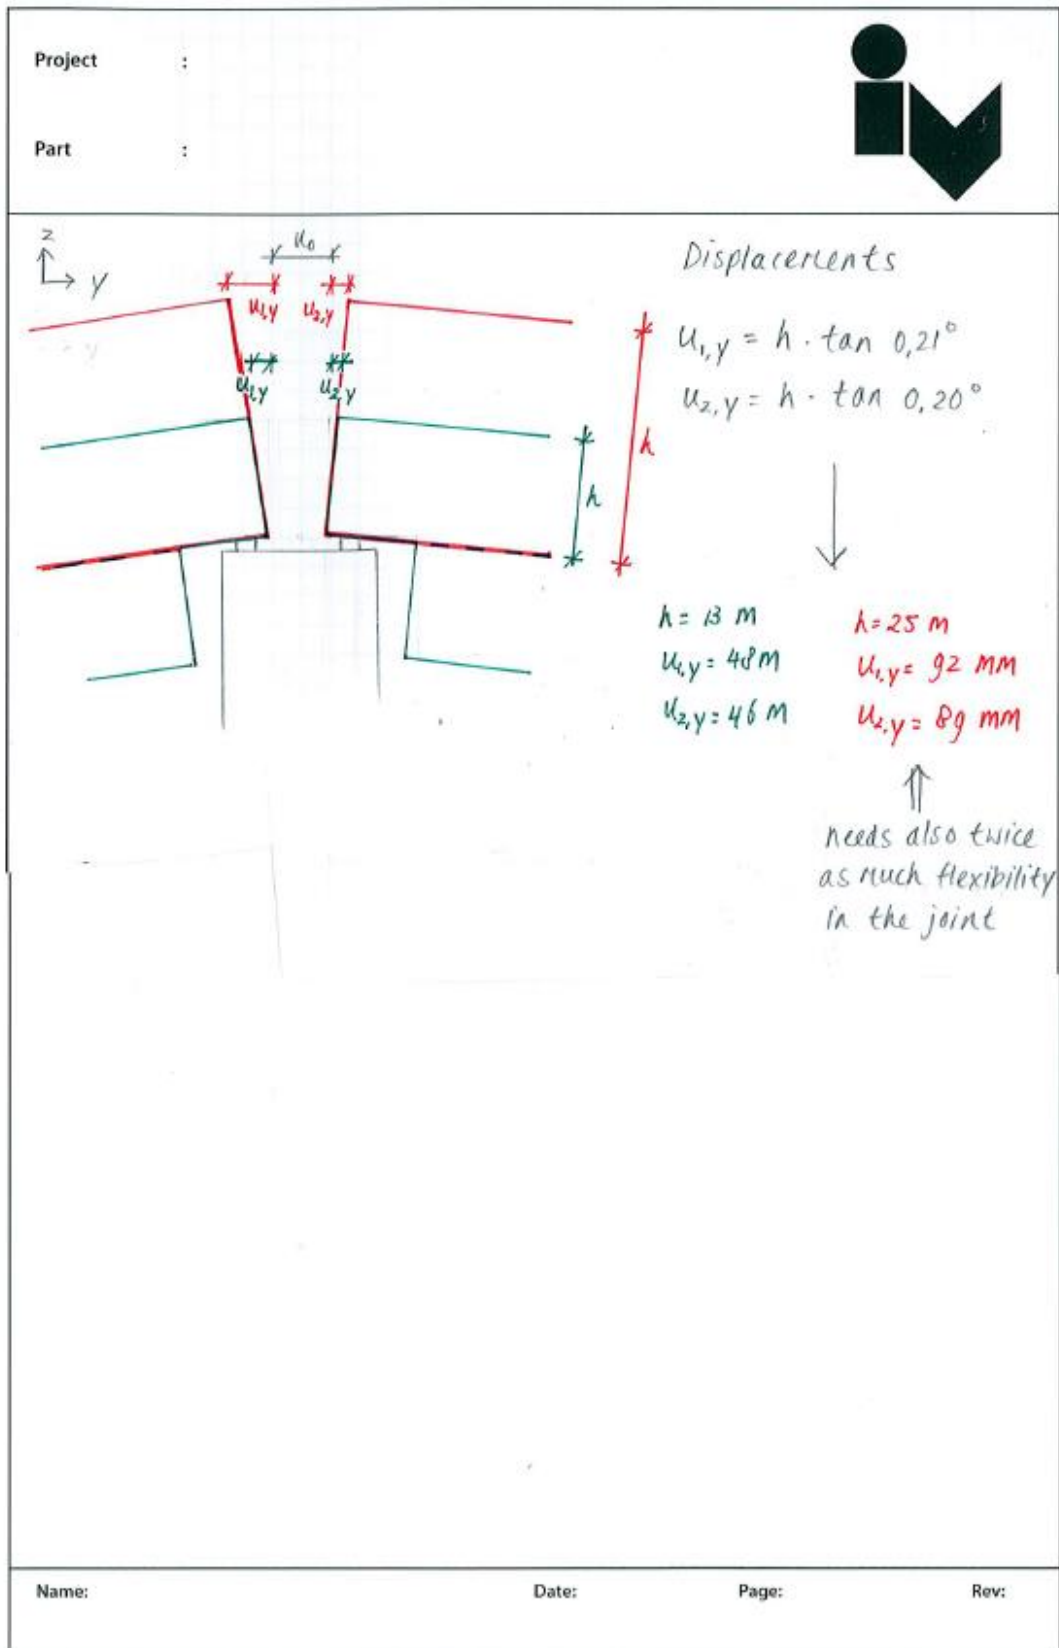 Project :
Part :
iv
z
y
u₀
u₁,y u₂,y
u₁,y u₂,y
h
h
Displacements
u₁,y = h · tan 0,21°
u₂,y = h · tan 0,20°
h = 13 m
u₁,y = 48 m
u₂,y = 46 m
h = 25 m
u₁,y = 92 mm
u₂,y = 89 mm
needs also twice
as much flexibility
in the joint
Name: Date: Page: Rev: